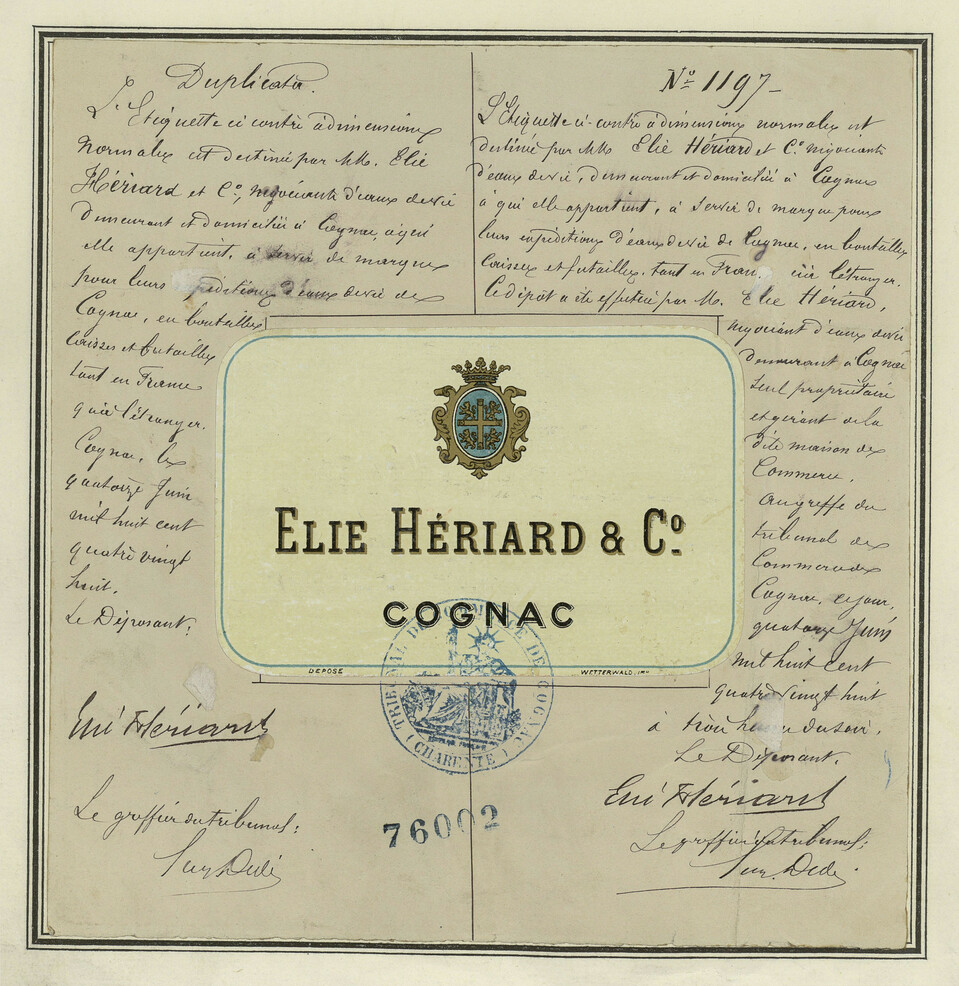 Duplicata.
L'Etiquette ci contre à dimensions
normales est destinée par MM. Elie
Hériard et Co, négociants d'eaux de vie
demeurant et domiciliés à Cognac, à qui
elle appartient, à servir de marque
pour leurs expéditions d'eaux de vie de
Cognac, en bouteilles
caisses et futailles
tant en France
qu'à l'étranger.
Cognac, le
quatorze Juin
mil huit cent
quatre vingt
huit.
Le Déposant:
Elie Hériard
Le greffier du tribunal:
No 1197
L'Etiquette ci-contre à dimensions normales est
destinée par MM Elie Hériard et Co négociants
d'eaux de vie, demeurant et domiciliés à Cognac
à qui elle appartient, à servir de marque pour
leurs expéditions d'eaux de vie de Cognac, en bouteilles
caisses et futailles, tant en Fran. qu'à l'étranger.
Le dépôt a été effectué par M. Elie Hériard,
négociant d'eaux de vie
demeurant à Cognac
seul propriétaire
et gérant de la
dite maison de
Commerce.
au greffe du
tribunal de
Commerce de
Cognac, ce jour,
quatorze Juin
mil huit cent
quatre vingt huit
à trois heures du soir.
Le Déposant.
Elie Hériard
Le greffier du tribunal:
ELIE HÉRIARD & Co.
COGNAC
DEPOSÉ
WETTERWALD. IMP.
TRIBUNAL DE COMMERCE DE COGNAC
(CHARENTE)
76002